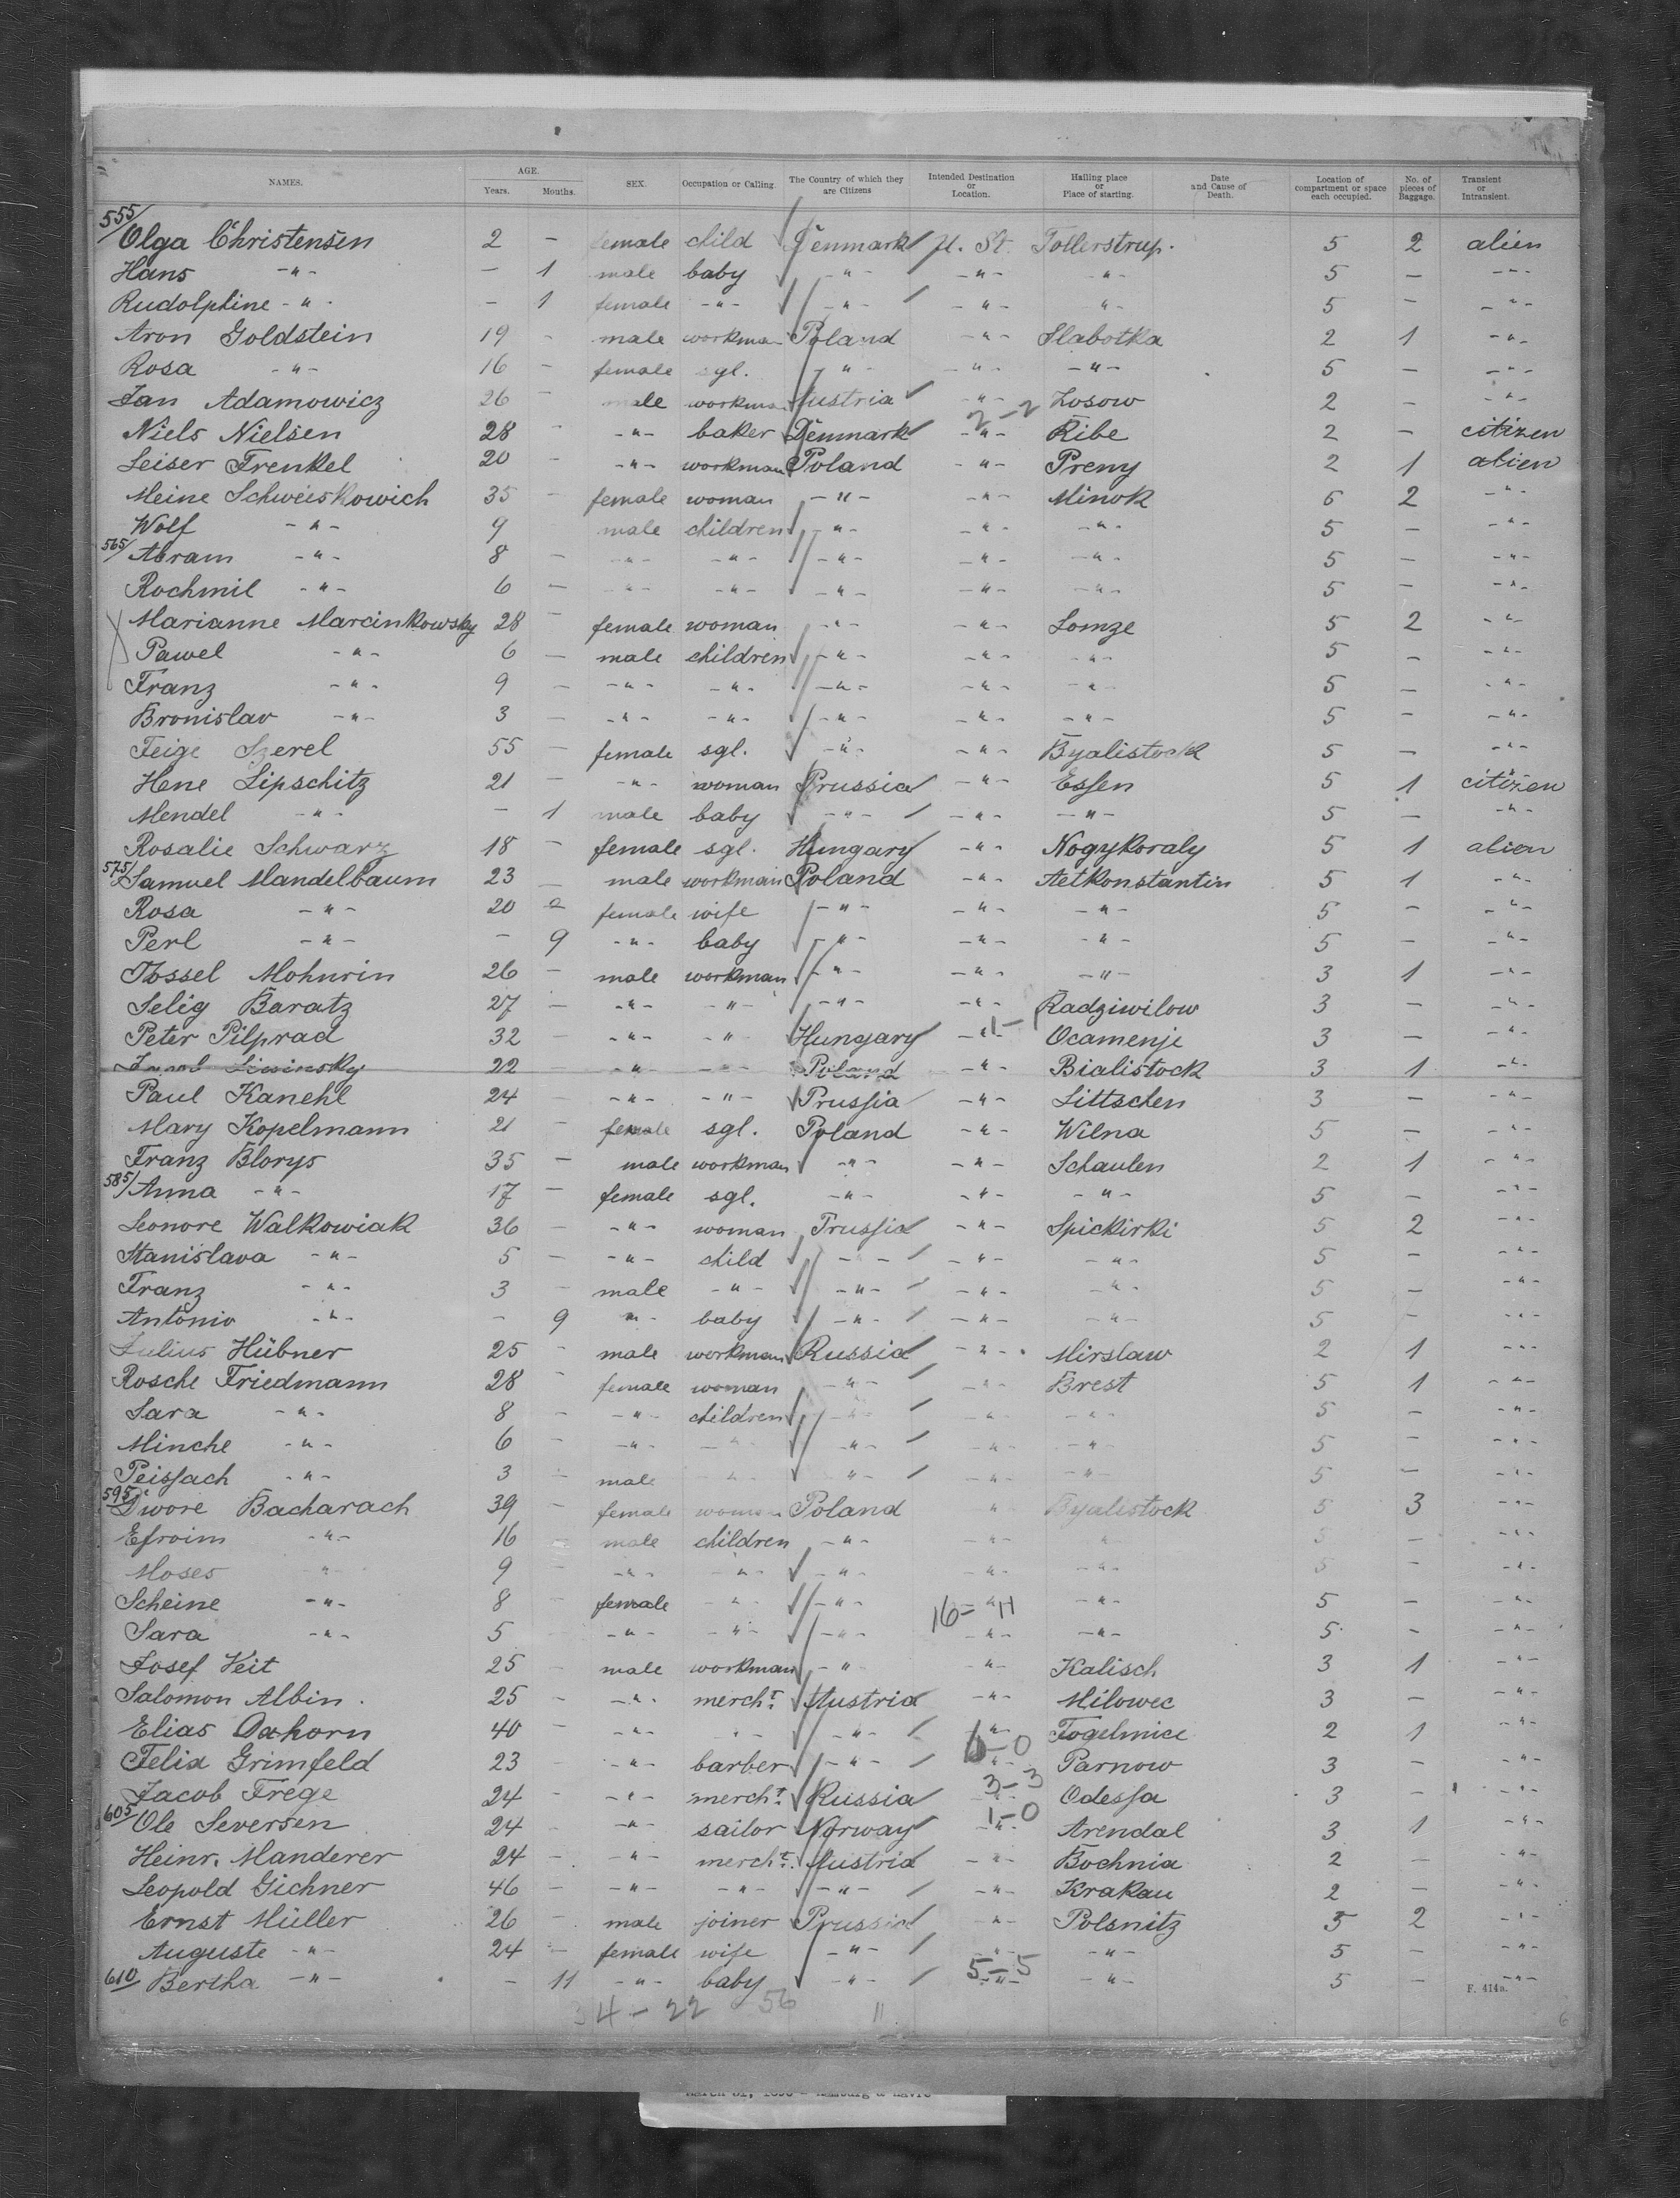 NAMES. AGE. Years. Months. SEX. Occupation or Calling. The Country of which they are Citizens Intended Destination or Location. Hailing place or Place of starting. Date and Cause of Death. Location of compartment or space each occupied. No. of pieces of Baggage. Transient or Intransient.
555/ Olga Christensen 2 - female child Denmark U. St. Tollerstrup. 5 2 alien
Hans -"- - 1 male baby -"- -"- -"- 5 - -"-
Rudolphine -"- - 1 female -"- -"- -"- "- 5 - -"-
Aron Goldstein 19 - male workman Poland -"- Slabotka 2 1 -"-
Rosa -"- 16 - female sgl. -"- -"- -"- 5 - -"-
Jan Adamowicz 26 - male workman Austria -"- Kosow 2 - -"-
2-2
Niels Nielsen 28 - -"- baker Denmark -"- Ribe 2 - citizen
Leiser Frenkel 20 - -"- workman Poland -"- Preny 2 1 alien
Meine Schweiskowich 35 - female woman -"- -"- Minok 6 2 -"-
Wolf -"- 9 male children -"- -"- -"- 5 - -"-
565/ Abram -"- 8 - -"- -"- -"- -"- -"- 5 - -"-
Rochmil -"- 6 - -"- -"- -"- -"- -"- 5 - -"-
Marianne Marcinkowsky 28 - female woman -"- -"- Lomze 5 2 -"-
Pawel -"- 6 - male children -"- -"- -"- 5 - -"-
Franz -"- 9 - -"- -"- -"- -"- -"- 5 - -"-
Bronislav -"- 3 - -"- -"- -"- -"- -"- 5 - -"-
Feige Szerel 55 - female sgl. -"- -"- Byalistock 5 - -"-
Hene Lipschitz 21 - -"- woman Prussia -"- Essen 5 1 citizen
Mendel -"- - 1 male baby -"- -"- -"- 5 - -"-
Rosalie Schwarz 18 - female sgl. Hungary -"- Nogykoraly 5 1 alien
575/ Samuel Mandelbaum 23 - male workman Poland -"- Aetkonstantin 5 1 -"-
Rosa -"- 20 - female wife -"- -"- -"- 5 - -"-
Perl -"- - 9 -"- baby -"- -"- -"- 5 - -"-
Jossel Mohurin 26 - male workman -"- -"- -"- 3 1 -"-
Selig Baratz 27 - -"- -"- -"- -"- Radziwilow 3 - -"-
1-1
Peter Pilprad 32 - -"- -"- Hungary -"- Ocamenje 3 - -"-
22 - -"- -"- Poland -"- Bialistock 3 1 -"-
Paul Kanehl 24 - -"- -"- Prussia -"- Littschen 3 - -"-
Mary Kopelmann 21 - female sgl. Poland -"- Wilna 5 - -"-
Franz Blorys 35 - male workman -"- -"- Schaulen 2 1 -"-
585/ Anna -"- 17 - female sgl. -"- -"- -"- 5 - -"-
Leonore Walkowiak 36 - -"- woman Prussia -"- Spickirki 5 2 -"-
Stanislava -"- 5 - -"- child -"- -"- -"- 5 - -"-
Franz -"- 3 - male -"- -"- -"- -"- 5 - -"-
Antonio -"- - 9 -"- baby -"- -"- -"- 5 - -"-
Julius Hübner 25 - male workman Russia -"- Mirslaw 2 1 -"-
Rosche Friedmann 28 - female woman -"- -"- Brest 5 1 -"-
Sara -"- 8 - -"- children -"- -"- -"- 5 - -"-
Minche -"- 6 - -"- -"- -"- -"- -"- 5 - -"-
Peissach -"- 3 - male -"- -"- -"- -"- 5 - -"-
595/ Dwore Bacharach 39 - female woman Poland -"- Byalistock 5 3 -"-
Efroim -"- 16 - male children -"- -"- -"- 5 - -"-
Moses -"- 9 - -"- -"- -"- -"- -"- 5 - -"-
Scheine -"- 8 - female -"- -"- -"- -"- 5 - -"-
16-11
Sara -"- 5 - -"- -"- -"- -"- -"- 5 - -"-
Josef Veit 25 - male workman -"- -"- Kalisch 3 1 -"-
Salomon Albin. 25 - -"- mercht. Austria -"- Milowec 3 - -"-
Elias Dahorn 40 - -"- -"- -"- -"- Togelmice 2 1 -"-
6-0
Felix Grimfeld 23 - -"- barber -"- -"- Parnow 3 - -"-
3-3
Jacob Frege 24 - -"- mercht. Russia -"- Odessa 3 - -"-
1-0
605/ Ole Seversen 24 - -"- sailor Norway -"- Arendal 3 1 -"-
Heinr. Manderer 24 - -"- mercht. Austria -"- Bochnia 2 - -"-
Leopold Gichner 46 - -"- -"- -"- -"- Krakau 2 - -"-
Ernst Müller 26 - male joiner Prussia -"- Polsnitz 5 2 -"-
Auguste -"- 24 - female wife -"- -"- -"- 5 - -"-
5-5
610/ Bertha -"- - 11 -"- baby -"- -"- -"- 5 - -"-
F. 414a.
34-22 56 11
6